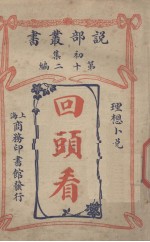 説部叢書
初集
第十二編
理想小説
回頭看
上海商務印書館發行